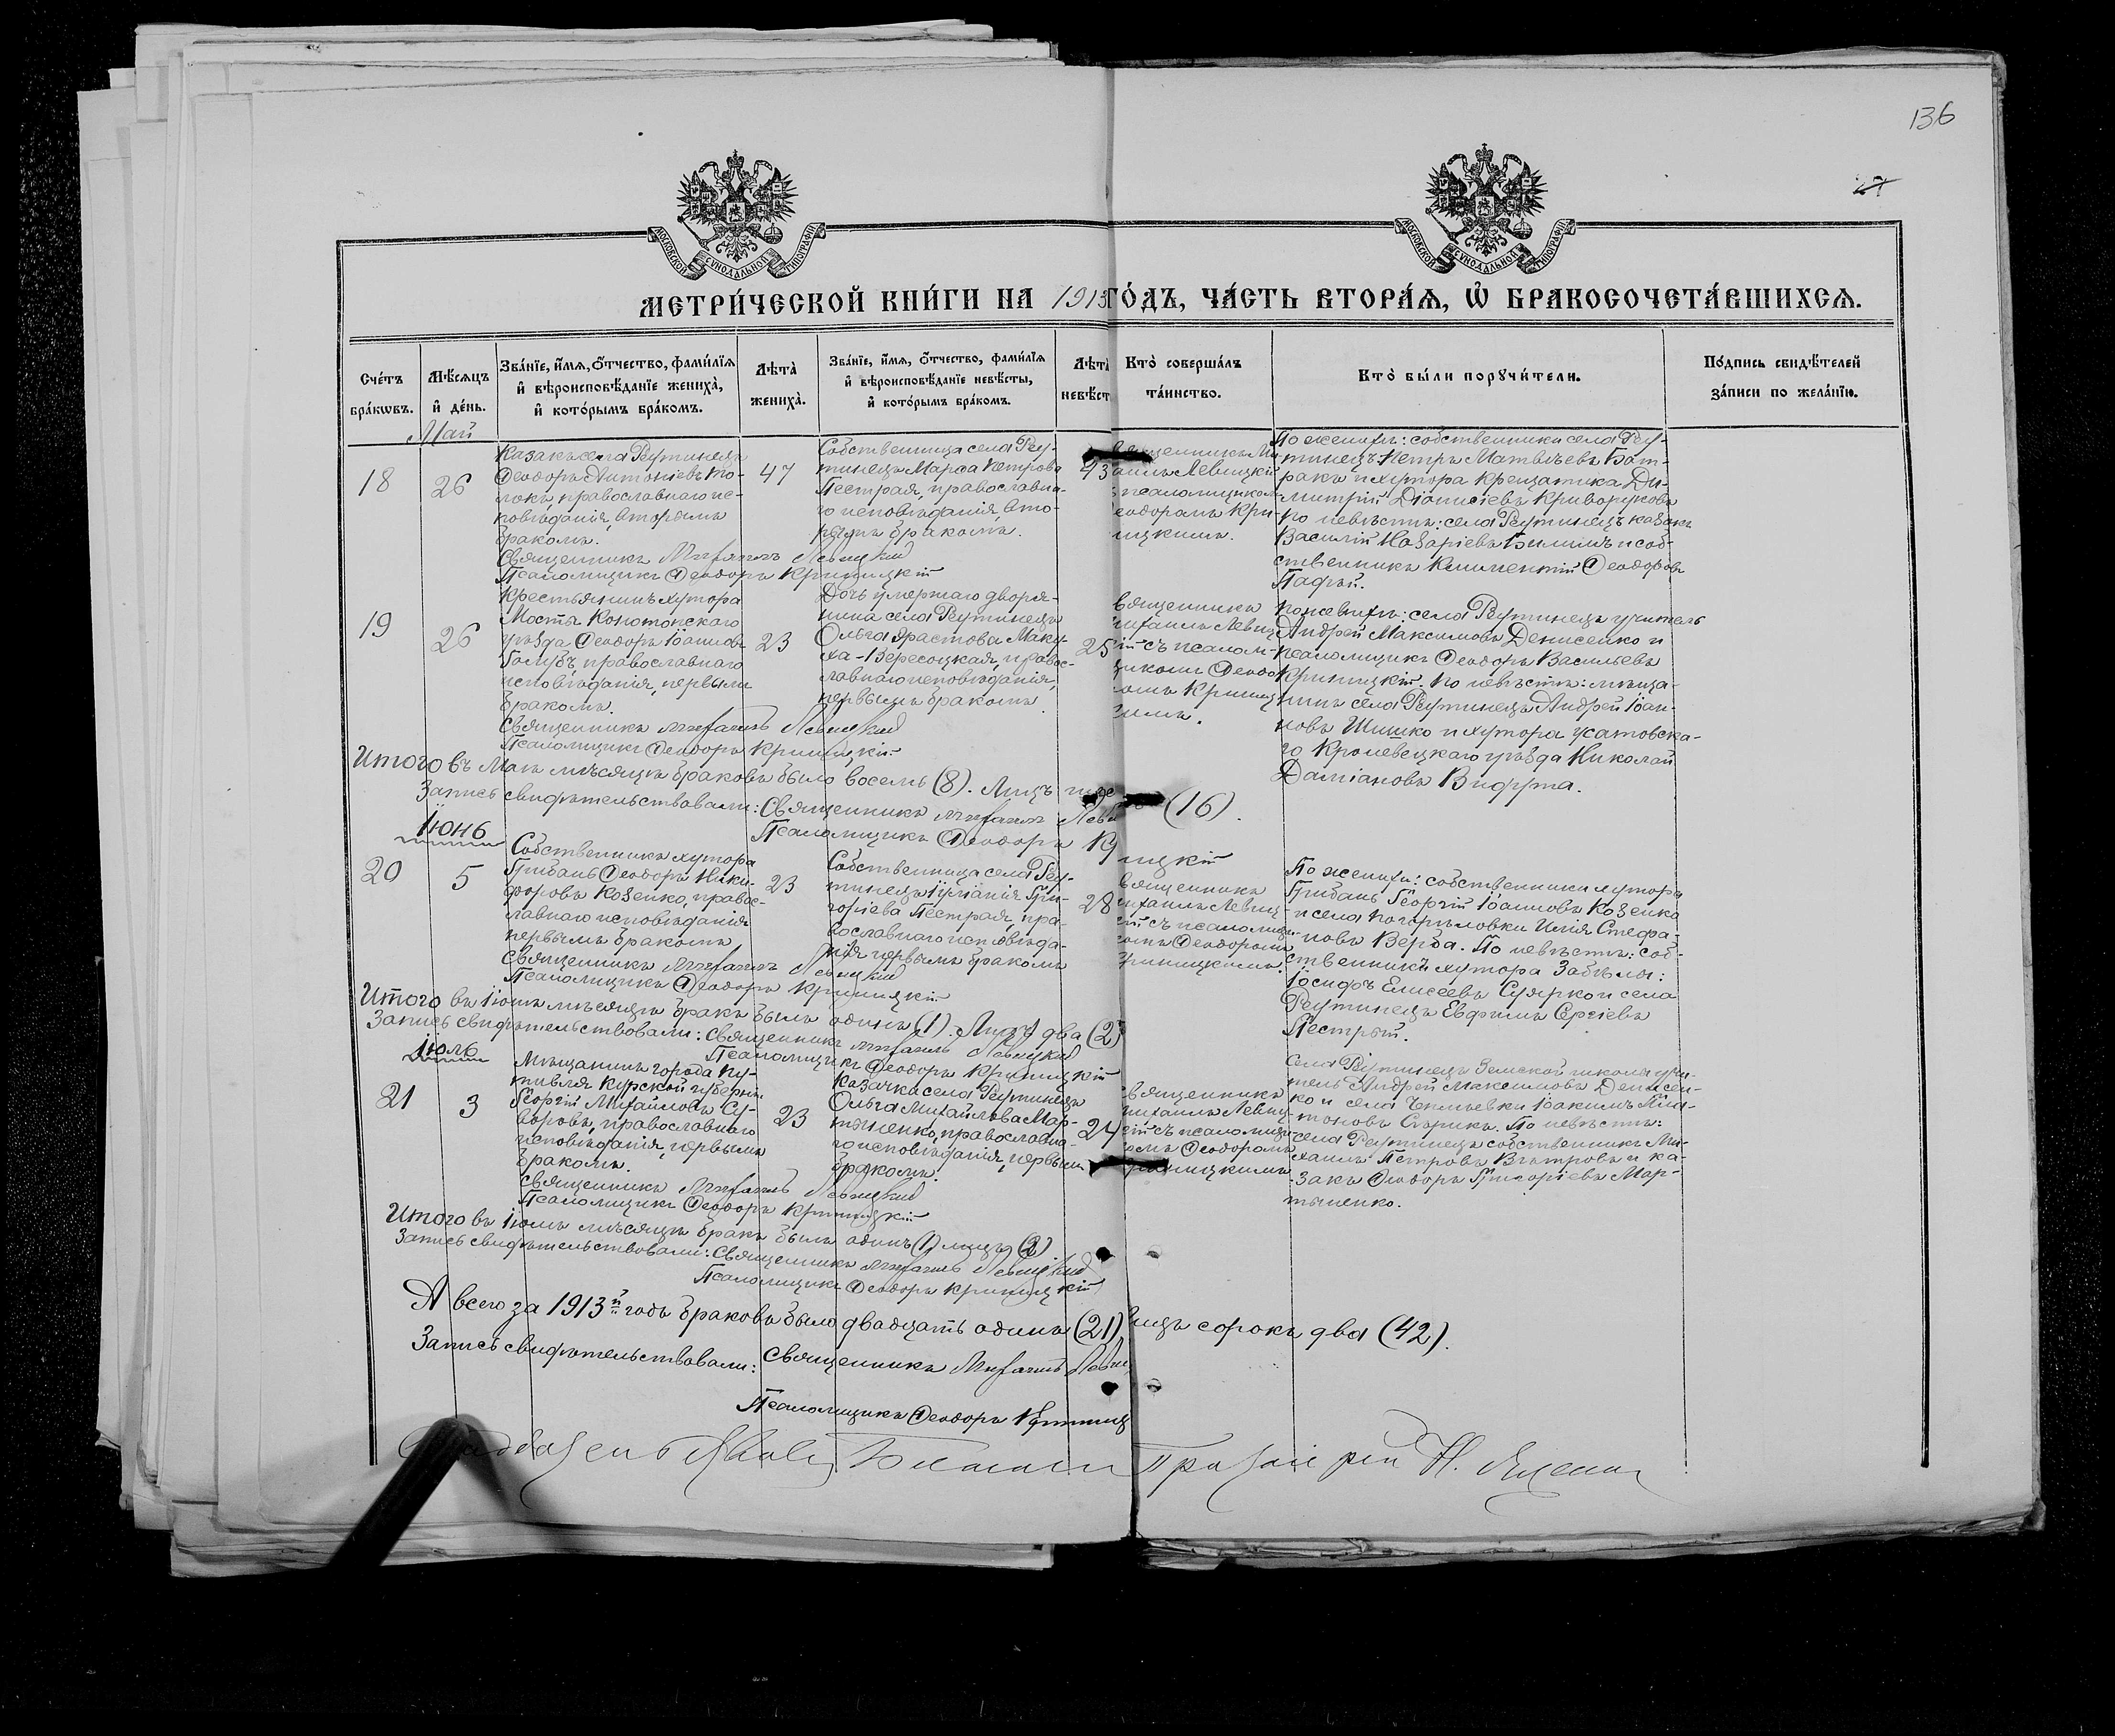 136
МОСКОВСКОЙ СѴНОДАЛЬНОЙ ТИПОГРАФІИ
МОСКОВСКОЙ СѴНОДАЛЬНОЙ ТИПОГРАФІИ
МЕТРИ́ЧЕСКОЙ КНИ́ГИ НА 1913 ГО́ДЪ, ЧА́СТЬ ВТОРА́Ѧ, Ѽ БРАКОСОЧЕТА́ВШИХСѦ.
Сче́тъ
бра́кѡвъ.
Мѣ́сѧцъ
и҆ де́нь.
Зва́нїе, и҆́мѧ, ѻ҆́тчество, фами́лїѧ
и҆ вѣроисповѣ́данїе жениха̀,
и҆ кото́рымъ бра́комъ.
Лѣ́та̀
жениха̀.
Зва́нїе, и҆́мѧ, ѻ҆́тчество, фами́лїѧ
и҆ вѣроисповѣ́данїе невѣ́сты,
и҆ кото́рымъ бра́комъ.
Лѣта̀
невѣ́ст
Кто̀ соверша́лъ
та́инство.
Кто̀ бы́ли порꙋчи́тели.
По́дпись свидѣ́телей
за́писи по жела́нїю.
Май
18
26
Казакъ села Реутинецъ
Ѳеодоръ Антоніевъ То-
локъ, православнаго ис-
повѣданія, вторымъ
бракомъ.
47
Собственница села Реу-
тинецъ Марѳа Петрова
Пестрая, православна-
го исповѣданія, вто-
рымъ бракомъ.
43
вященникъ Ми
аилъ Левицкій
ъ псаломщиком
еодоромъ Кри-
ицкимъ.
По женихѣ: собственники села Реу-
тинецъ Петръ Матвѣевъ Бат-
ракъ и хутора Крещатика Ди-
митрій Діонисіевъ Криворуковъ
По невѣстѣ: села Реутинецъ казакъ
Василій Назаріевъ Билишъ и соб-
ственникъ Климентій Ѳеодоровъ
Священникъ Михаилъ Левицкій
Псаломщикъ Ѳеодоръ Криницкій
19
26
Крестьянинъ хутора
Моста Конотопскаго
уѣзда Ѳеодоръ Іоанновъ
Голубъ, православнаго
исповѣданія, первымъ
бракомъ.
23
Дочь умершаго дворя-
нина села Реутинецъ
Ольга Ерастова Маку-
ха-Вересоцкая, правос-
лавнаго исповѣданія,
первымъ бракомъ.
25
вященникъ
ихаилъ Левиц
ій съ псалом-
щикомъ Ѳеодо
омъ Криниц
имъ.
По женихѣ: села Реутинецъ учитель
Андрей Максимовъ Денисенко и
псаломщикъ Ѳеодоръ Васильевъ
Криницкій. По невѣстѣ: мѣща-
нинъ села Реутинецъ Андрей Іоан-
новъ Шишко и хутора Усатовска-
го Кролевецкаго уѣзда Николай
Даміановъ
Священникъ Михаилъ Левицкій
Псаломщикъ Ѳеодоръ Криницкій
Итого въ Маѣ мѣсяцѣ браковъ было восемь (8). Лицъ (16).
Запись свидѣтельствовали: Священникъ Михаилъ Леви
Псаломщикъ Ѳеодоръ Кр ицкій
Іюнь
20
5
Собственникъ хутора
Грибань Ѳеодоръ Ники-
форовъ Козенко, правос-
лавнаго исповѣданія
первымъ бракомъ
23
Собственница села Реу-
тинецъ Іуліанія Гри-
горіева Пестрая, пра-
вославнаго исповѣда-
нія первымъ бракомъ
28
вященникъ
ихаилъ Левиц-
ій съ псаломщи-
омъ Ѳеодоромъ
риницкимъ.
По женихѣ: собственники хутора
Грибань Георгій Іоанновъ Козенко
и села Погорѣловки Илія Стефа-
новъ Верба. По невѣстѣ: соб-
ственники хутора Забѣлы:
Іосифъ Елисеевъ Суярко и села
Реутинецъ Евфимъ Сергіевъ
Пестрый.
Священникъ Михаилъ Левицкій
Псаломщикъ Ѳеодоръ Криницкій
Итого въ Іюнѣ мѣсяцѣ бракъ былъ одинъ (1). Лицъ два (2)
Запись свидѣтельствовали: Священникъ Михаилъ Левицкій
Псаломщикъ Ѳеодоръ Криницкій
Іюль
21
3
Мѣщанинъ города Пу-
тивля Курской губерніи
Георгій Михайловъ Су-
воровъ, православнаго
исповѣданія, первымъ
бракомъ.
23
Казачка села Реутинецъ
Ольга Михайлова Мар-
тыненко, православна-
го исповѣданія, первымъ
бракомъ.
24
вященникъ
ихаилъ Левиц-
ій съ псаломщи-
омъ Ѳеодоромъ
риницкимъ
Села Реутинецъ Земской школы учи-
тель Андрей Максимовъ Денисен-
ко и села Іоакимъ Пла-
тоновъ Старикъ. По невѣстѣ:
села Реутинецъ собственникъ Ми-
хаилъ Петровъ Вѣтровъ и ка-
закъ Ѳеодоръ Григоріевъ Мар-
тыненко.
Священникъ Михаилъ Левицкій
Псаломщикъ Ѳеодоръ Криницкій
Итого въ Іюлѣ мѣсяцѣ бракъ былъ одинъ (1) лицъ (2)
Запись свидѣтельствовали: Священникъ Михаилъ Левицкій
Псаломщикъ Ѳеодоръ Криницкій
А всего за 1913й годъ браковъ было двадцать одинъ (21) лицъ сорокъ два (42).
Запись свидѣтельствовали: Священникъ Михаилъ Леви
Псаломщикъ Ѳеодоръ Криниц